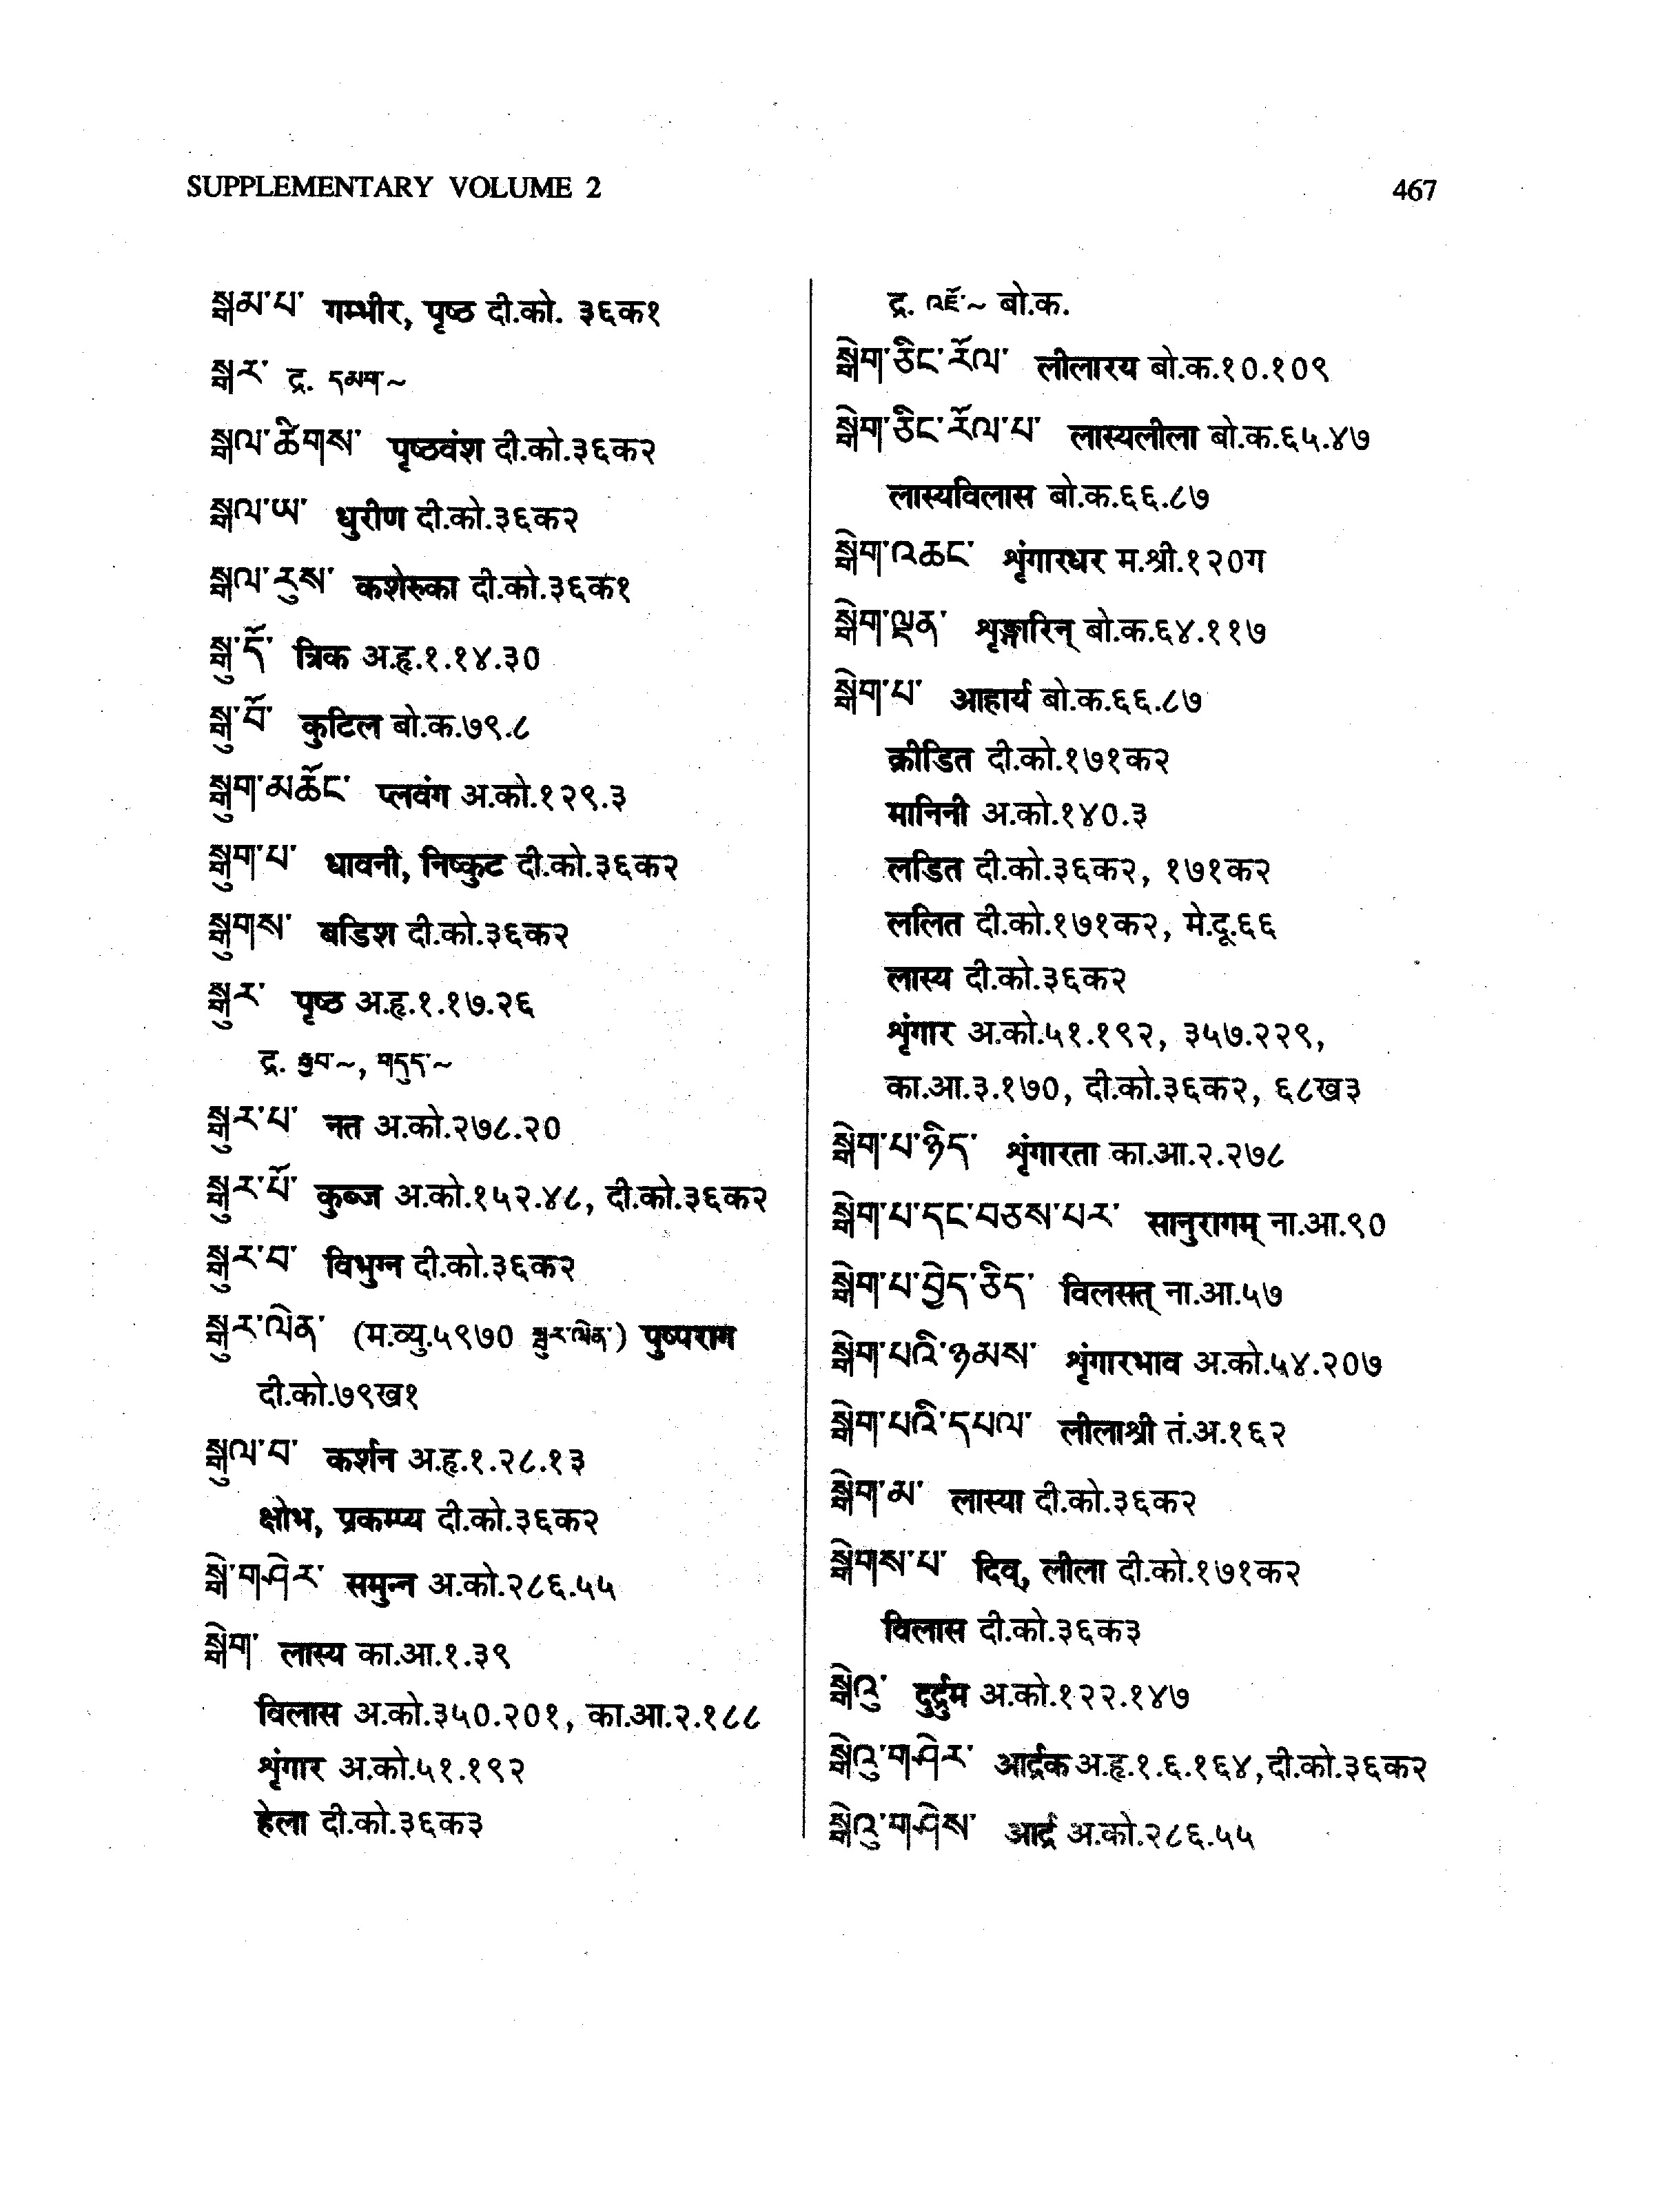 SUPPLEMENTARY VOLUME 2
467
སྒམ་པ་ गम्भीर, पृष्ठ दी.को. ३६क१
སྒར་ द्र. དམག་~
སྒལ་ཚིགས་ पृष्ठवंश दी.को.३६क२
སྒལ་ཡ་ धुरीण दी.को.३६क२
སྒལ་རུས་ कशेरुका दी.को.३६क१
སྒུ་དོ་ त्रिक अ.हृ.१.१४.३०
སྒུ་པོ་ कुटिल बो.क.७९.८
སྒུག་མཆོང་ प्लवंग अ.को.१२९.३
སྒུག་པ་ धावनी, निष्कुट दी.को.३६क२
སྒུགས་ बडिश दी.को.३६क२
སྒུར་ पृष्ठ अ.हृ.१.१७.२६
द्र. རྒྱབ་~, གདུད་~
སྒུར་པ་ नत अ.को.२७८.२०
སྒུར་པོ་ कुब्ज अ.को.१५२.४८, दी.को.३६क२
སྒུར་བ་ विभुग्न दी.को.३६क२
སྒུར་ལེན་ (म.व्यु.५९७० སྦུར་ལེན་) पुष्पराग
दी.को.७९ख१
སྒུལ་བ་ कर्शन अ.हृ.१.२८.१३
क्षोभ, प्रकम्प्य दी.को.३६क२
སྒེ་གཤེར་ समुन्न अ.को.२८६.५५
སྒེག་ लास्य का.आ.१.३९
विलास अ.को.३५०.२०१, का.आ.२.१८८
शृंगार अ.को.५१.१९२
हेला दी.को.३६क३
द्र. འཇོ་~ बो.क.
སྒེག་ཅིང་རོལ་ लीलारय बो.क.१०.१०९
སྒེག་ཅིང་རོལ་པ་ लास्यलीला बो.क.६५.४७
लास्यविलास बो.क.६६.८७
སྒེག་འཆང་ शृंगारधर म.श्री.१२०ग
སྒེག་ལྡན་ शृङ्गारिन् बो.क.६४.११७
སྒེག་པ་ आहार्य बो.क.६६.८७
क्रीडित दी.को.१७१क२
मानिनी अ.को.१४०.३
लडित दी.को.३६क२, १७१क२
ललित दी.को.१७१क२, मे.दू.६६
लास्य दी.को.३६क२
शृंगार अ.को.५१.१९२, ३५७.२२९,
का.आ.३.१७०, दी.को.३६क२, ६८ख३
སྒེག་པ་ཉིད་ शृंगारता का.आ.२.२७८
སྒེག་པ་དང་བཅས་པར་ सानुरागम् ना.आ.९०
སྒེག་པ་བྱེད་ཅིད་ विलसत् ना.आ.५७
སྒེག་པའི་ཉམས་ शृंगारभाव अ.को.५४.२०७
སྒེག་པའི་དཔལ་ लीलाश्री तं.अ.१६२
སྒེག་མ་ लास्या दी.को.३६क२
སྒེགས་པ་ दिव्, लीला दी.को.१७१क२
विलास दी.को.३६क३
སྒེའུ་ दुर्द्रुम अ.को.१२२.१४७
སྒེའུ་གཤེར་ आर्द्रक अ.हृ.१.६.१६४,दी.को.३६क२
སྒེའུ་གཤེས་ आर्द्र अ.को.२८६.५५